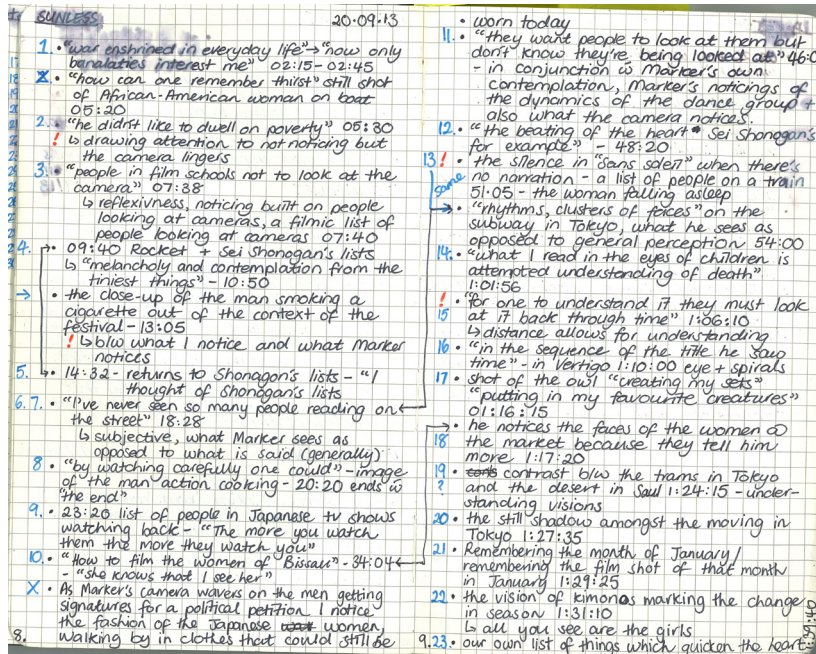 SUNLESS 20·09·13
1. • "war enshrined in everyday life" → "now only
banalaties interest me" 02:15 - 02:45
X • "how can one remember thirst" still shot
of African-American woman on boat
05:20
2. • "he didn't like to dwell on poverty" 05:30
! ↳ drawing attention to not noticing but
the camera lingers
3. • "people in film schools not to look at the
camera" 07:38
↳ reflexivness, noticing built on people
looking at cameras, a filmic list of
people looking at cameras 07:40
4. • 09:40 Rocket + Sei Shonagon's lists
↳ "melancholy and contemplation from the
tiniest things" - 10:50
→ • the close-up of the man smoking a
cigarette out of the context of the
festival - 13:05
! ↳ b/w what I notice and what Marker
notices
5. • 14:32 - returns to Shonagon's lists - "I
thought of Shonagon's lists
6.7. • "I've never seen so many people reading on
the street" 18:28
↳ subjective, what Marker sees as
opposed to what is said (generally)
8 • "by watching carefully one could" - image
of the man action cooking - 20:20 ends w
"the end"
9. • 23:20 list of people in Japanese tv shows
watching back - "The more you watch
them the more they watch you"
10. • "How to film the women of Bissau" - 34:04
- "she knows that I see her"
X • As Marker's camera wavers on the men getting
signatures for a political petition I notice
the fashion of the Japanese women,
8. walking by in clothes that could still be
• worn today
11. • "they want people to look at them but
don't know they're being looked at" 46:0
- in conjunction w Marker's own
contemplation, Marker's noticings of
the dynamics of the dance group +
also what the camera notices.
12. • "the beating of the heart" Sei Shonagon's
for example" - 48:20
13 ! • the silence in "Sans soleil" when there's
no narration - a list of people on a train
51:05 - the woman falling asleep
same → • "rhythms, clusters of foices" on the
subway in Tokyo, what he sees as
opposed to general perception 54:00
14. • "what I read in the eyes of children is
attempted understanding of death"
1:01:56
! • "for one to understand it they must look
15 at it back through time" 1:06:10
↳ distance allows for understanding
16 • "in the sequence of the title he saw
time" - in Vertigo 1:10:00 eye + spirals
17 • shot of the owl "creating my sets"
"putting in my favourite creatures"
01:16:15
• he notices the faces of the women @
18 the market because they tell him
more 1:17:20
19 • contrast b/w the trams in Tokyo
? and the desert in Saul 1:24:15 - under-
standing visions
20 • the still shadow amongst the moving in
Tokyo 1:27:35
21 • Remembering the month of January /
remembering the film shot of that month
in January 1:29:25
22 • the vision of kimonos marking the change
in season 1:31:10
↳ all you see are the girls
9.23. • our own list of things which quicken the heart
1:37:40